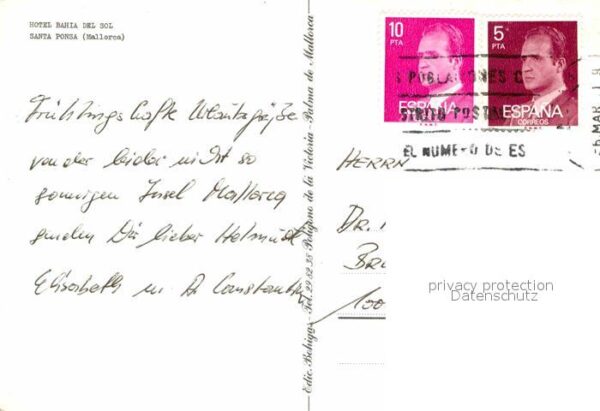 HOTEL BAHIA DEL SOL
SANTA PONSA (Mallorca)
Frühlingshafte Urlaubsgrüße
von der leider nicht so
sonnigen Insel Mallorca
senden Dir lieber Helmut
Elisabeth u.
Edic. Bohigas - Tel. 29 82 35 Polígono de la Victoria - Palma de Mallorca
10
PTA
ESPAÑA
5
PTA
ESPAÑA
CORREOS
S POBLACIONES C
STRITO POSTAL
EL NUMERO DE ES
MAR
HERRN
DR.
privacy protection
Datenschutz